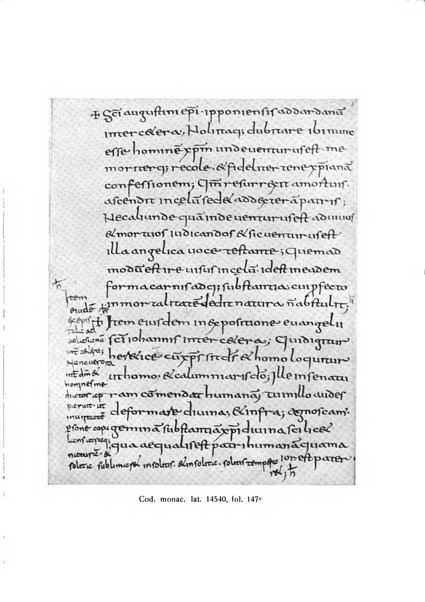 Sc̄i augustini ep̄i ipponiensis ad dardanū
inter cetera, Noli itaq; dubitare ibi nunc
esse hominē xp̄m unde uenturus est. me
moriterq; recole. & fideliter tene xp̄ianā
confessionem; Qm̄ resurrexit a mortuis.
ascendit in celū sedet ad dexterā patris;
Nec aliunde quā inde uenturus est ad uiuos
& mortuos iudicandos & sic uenturus est
illa angelica uoce testante; Quemad
modū est ire uisus in celū. id est in eadem
forma carnis adq; substantia cui p̄fecto
inmortalitatē dedit natura n̄ abstulit; h̄
Item eiusdem in expositione euangelii
sc̄i iohannis inter cetera; Quid igitur
heretice cū xp̄s sit d̄s & homo loquitur
ut homo. & calumniaris dō; Ille in se natu
ram cōmendat humanā; tu in illo audes
deformare diuina, & infra; agnoscam;
geminā substantiā xp̄i diuinā scilic&
qua aequalis est patri humanā qua ma
ior est pater
Item
eiusdē
Nunc uero
int̄ dm̄ &
homines me
solitis sublimicrei insolitis. & insolitis. solitis tempera
rei; h̄
Cod. monac. lat. 14540, fol. 147ᵛ